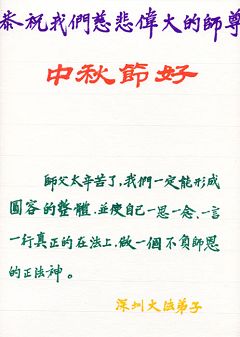 恭祝我們慈悲偉大的師尊
中秋節好
師父太辛苦了,我們一定能形成
圓容的整體,並使自己一思一念、一言
一行真正的在法上,做一個不負師恩
的正法神。
深圳大法弟子